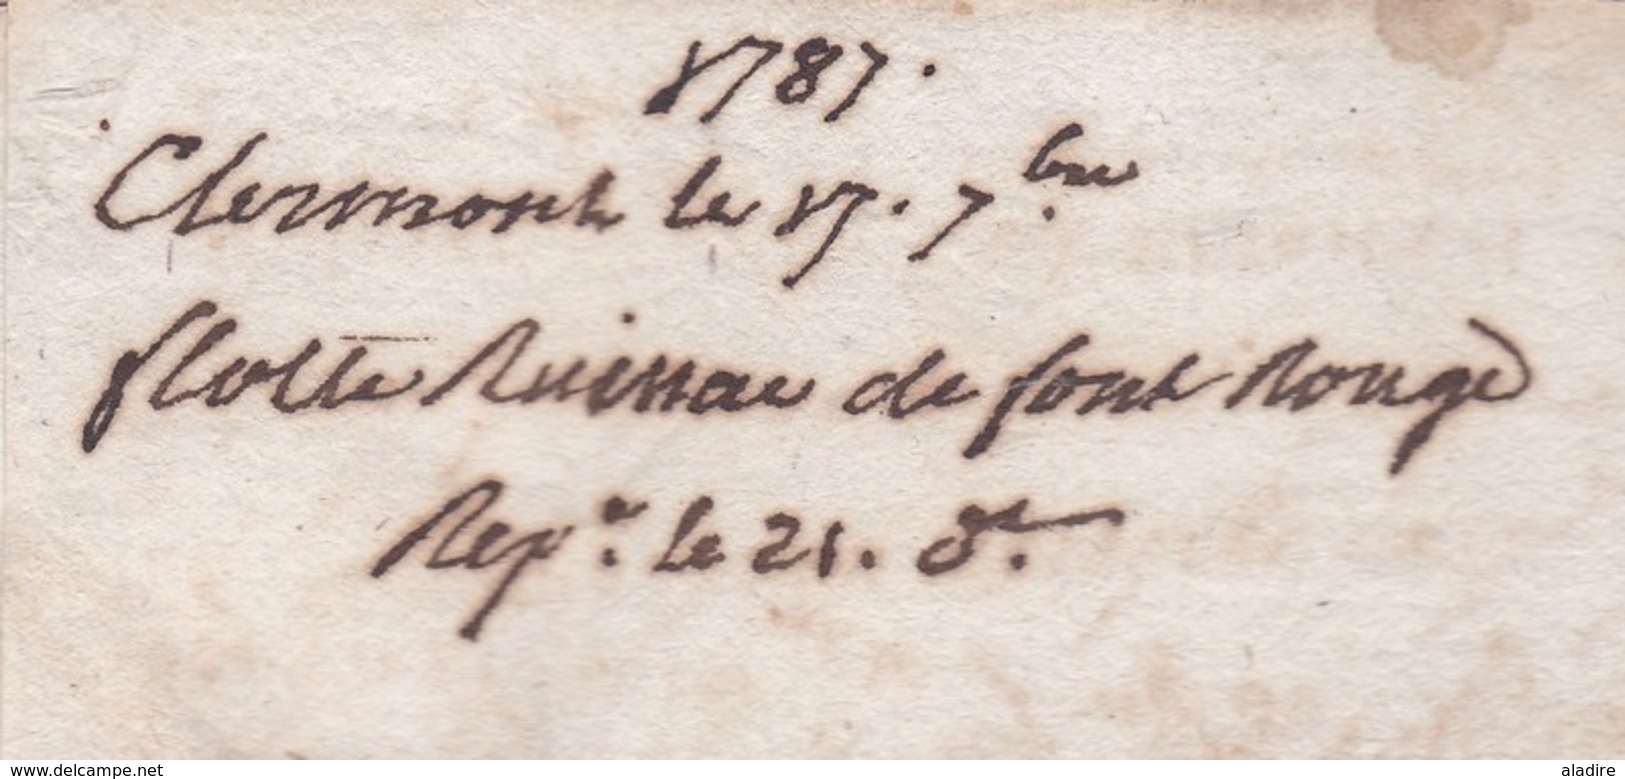 1787.
Clermont le 17. 7bre
flotte Ruissau de font Rouge
Repe. le 21. dt.
www.delcampe.net
aladire